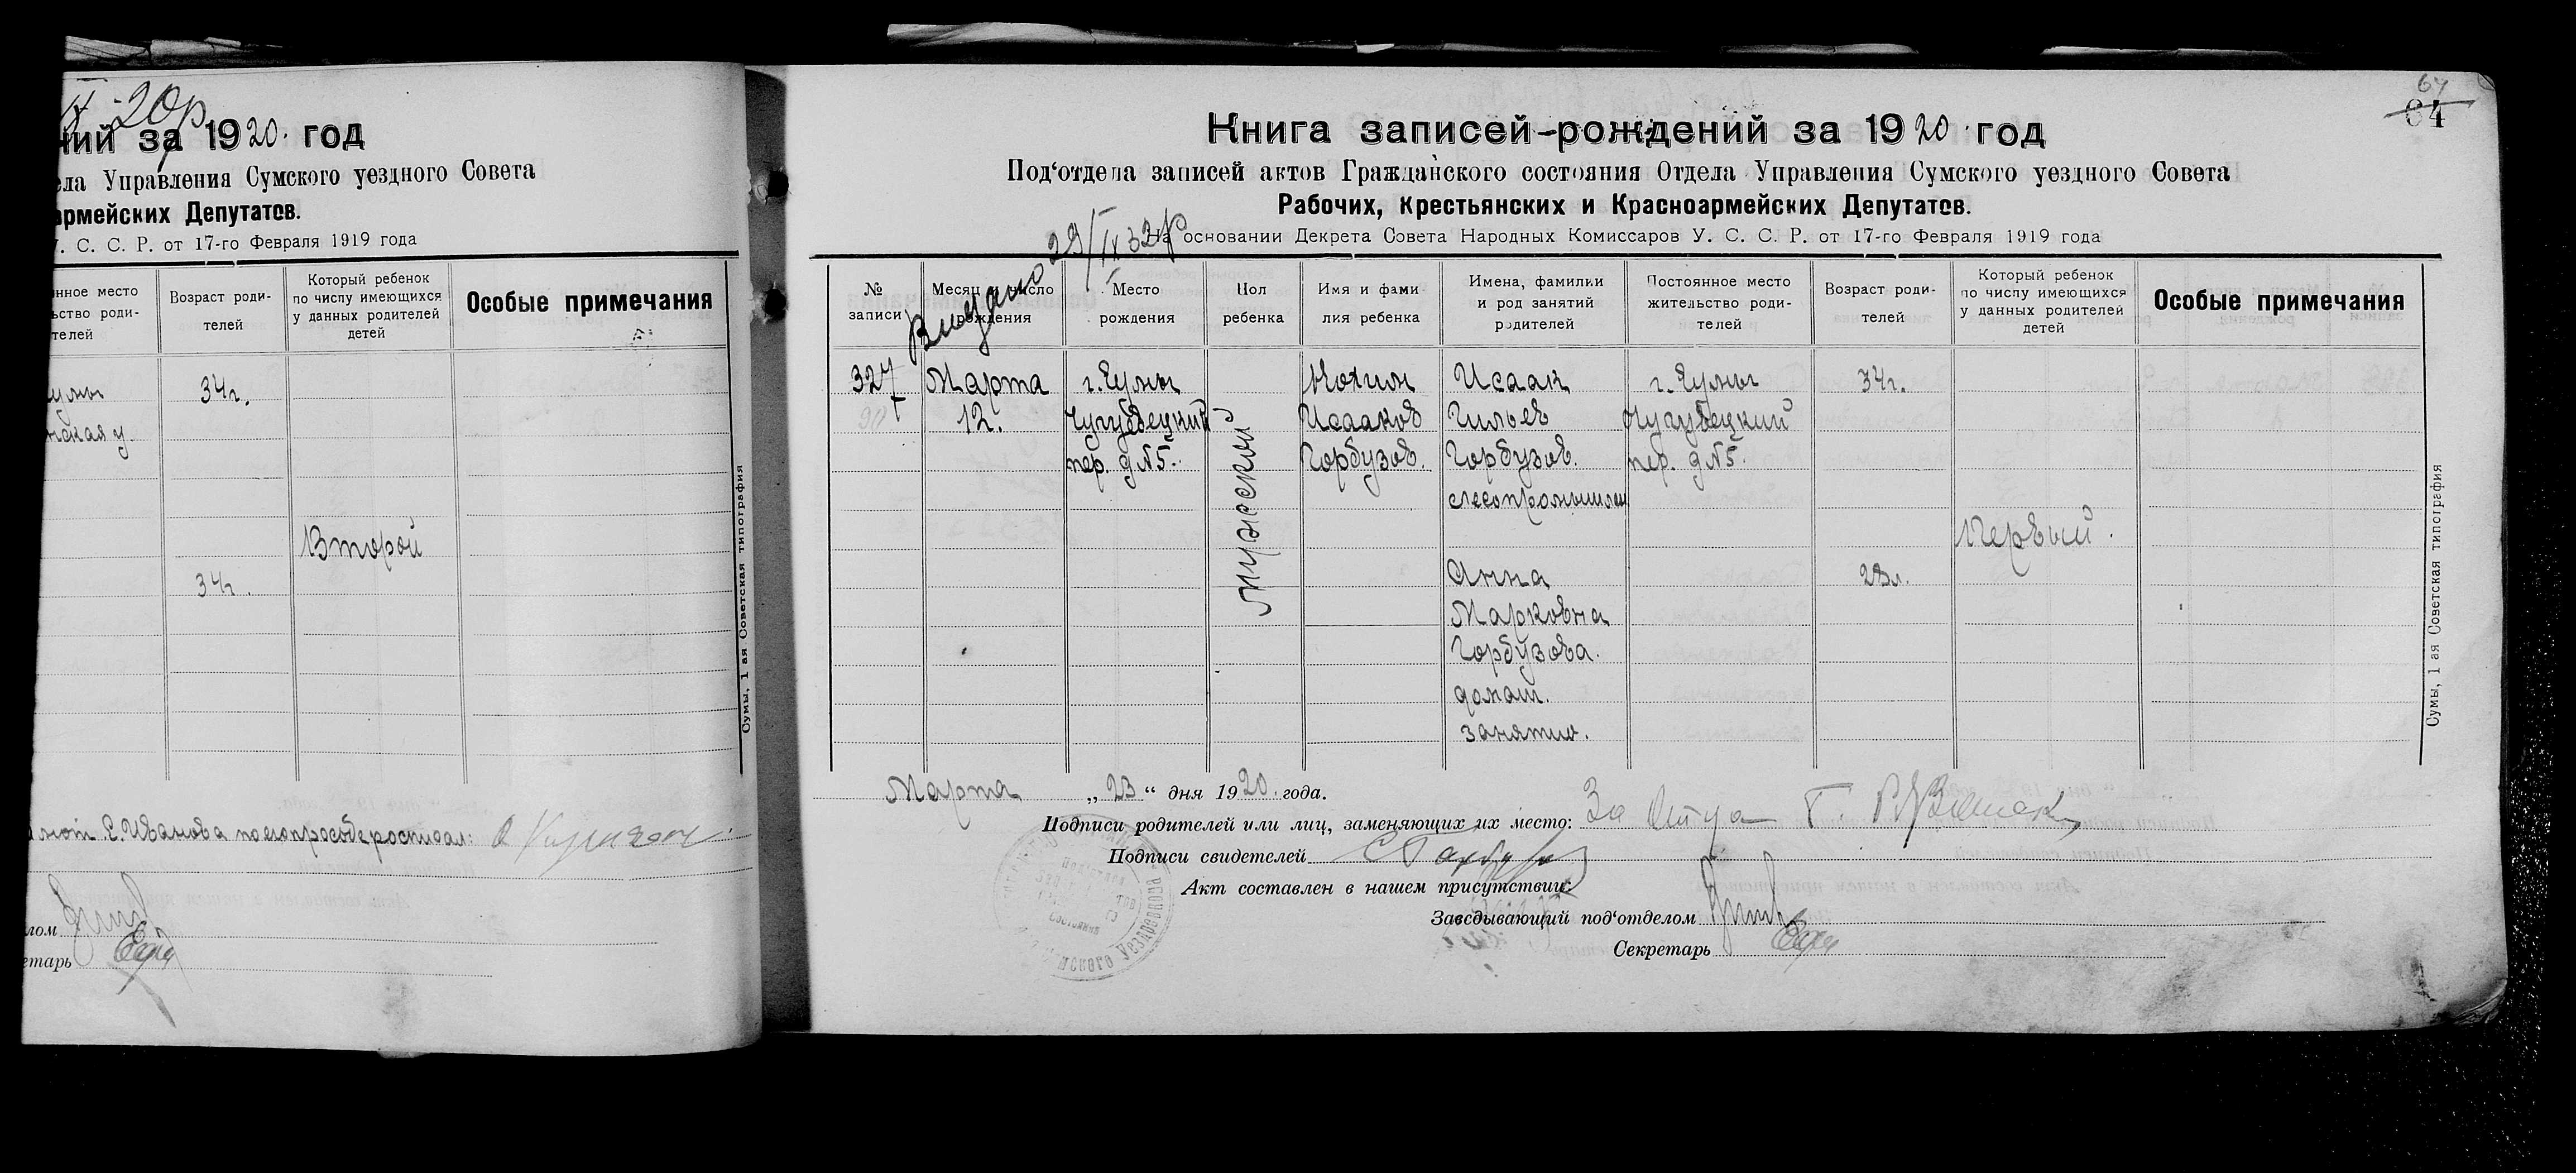 ний за 1920. год
ела Управления Сумского уездного Совета
армейских Депутатов.
У. С. С. Р. от 17-го Февраля 1919 года
нное место
ьство роди-
телей
Возраст роди-
телей
Который ребенок
по числу имеющихся
у данных родителей
детей
Особые примечания
умы
34г.
ская у.
Второй
34г.
Сумы, 1 ая Советская типография
лом
етарь
64
Книга записей-рождений за 1920. год
Под‘отдела записей актов Гражданского состояния Отдела Управления Сумского уездного Совета
Рабочих, Крестьянских и Красноармейских Депутатов.
На основании Декрета Совета Народных Комиссаров У. С. С. Р. от 17-го Февраля 1919 года
Выдано 29/IX 32р
№
записи
Месяц и число
рождения
Место
рождения
Пол
ребенка
Имя и фами
лия ребенка
Имена, фамилии
и род занятий
родителей
Постоянное место
жительство роди-
телей
Возраст роди-
телей
Который ребенок
по числу имеющихся
у данных родителей
детей
Особые примечания
327
Марта
12.
г. Сумы
Чугуевецкий
пер. д№5.
мужеский
Нохим
Исааков
Горбузов.
Исаак
Гильев
Горбузов.
лесопромышлен
Анна
Марковна
Горбузова.
домаш.
занятие.
г. Сумы
Чугуевецкий
пер. д№5.
34г.
23л.
Первый.
Сумы, 1 ая Советская типография
Марта „23“ дня 1920. года.
Подписи родителей или лиц, заменяющих их место: За Отца Г.
Подписи свидетелей
Акт составлен в нашем присутствии:
Заведывающий под‘отделом
Секретарь